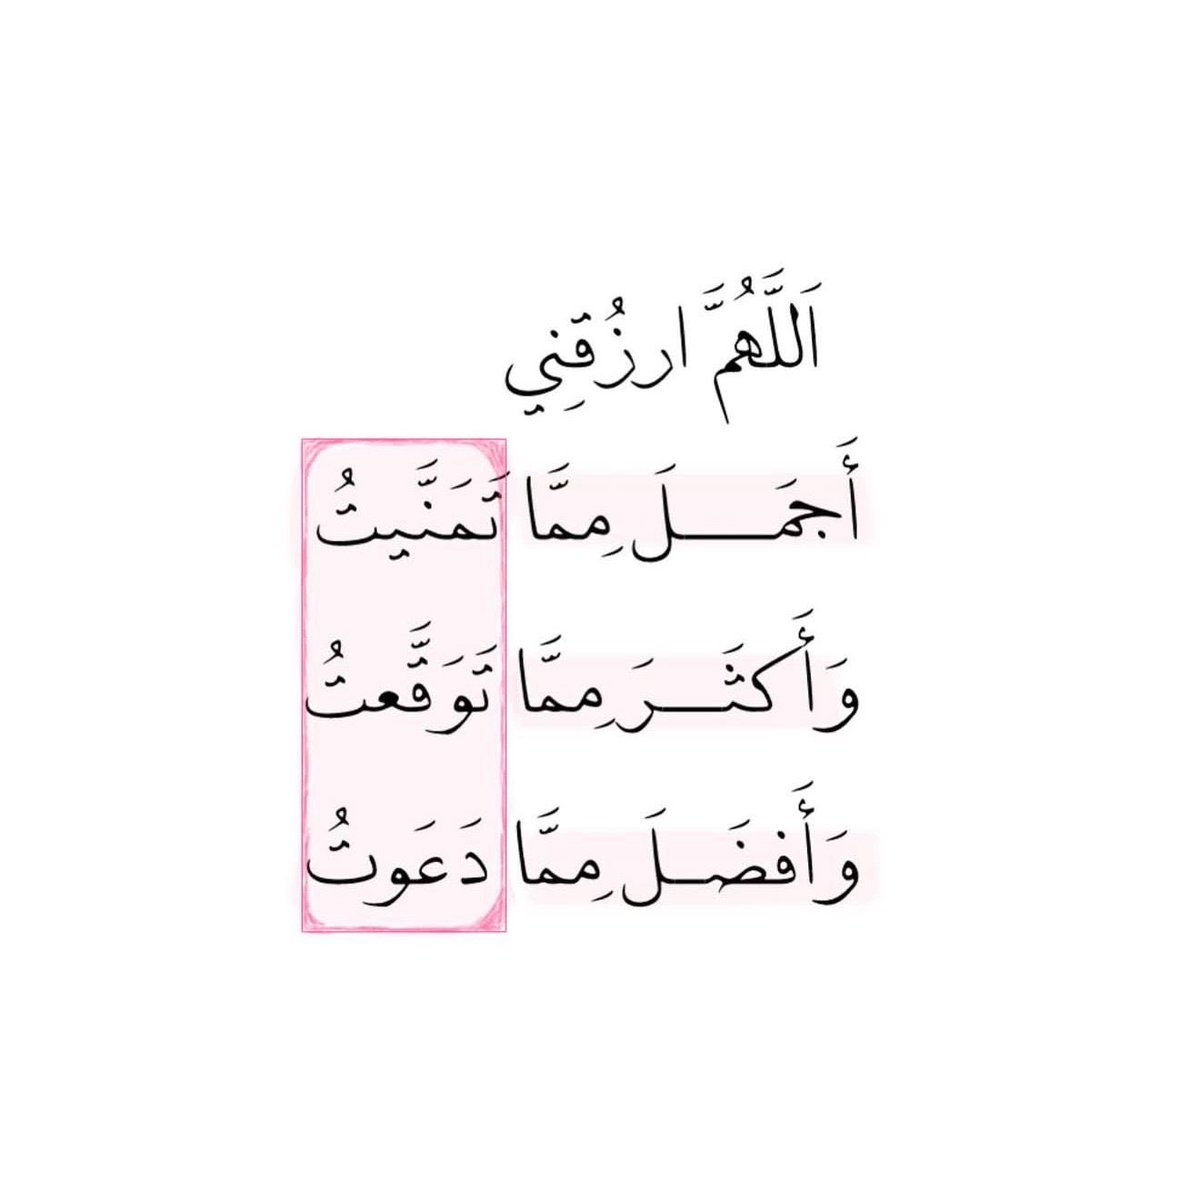 اَللَّهُمَّ ارزُقنِي
أَجمَـــلَ مِمَّا تَمَنَّيتُ
وَأَكثَـــرَ مِمَّا تَوَقَّعتُ
وَأَفضَـــلَ مِمَّا دَعَوتُ